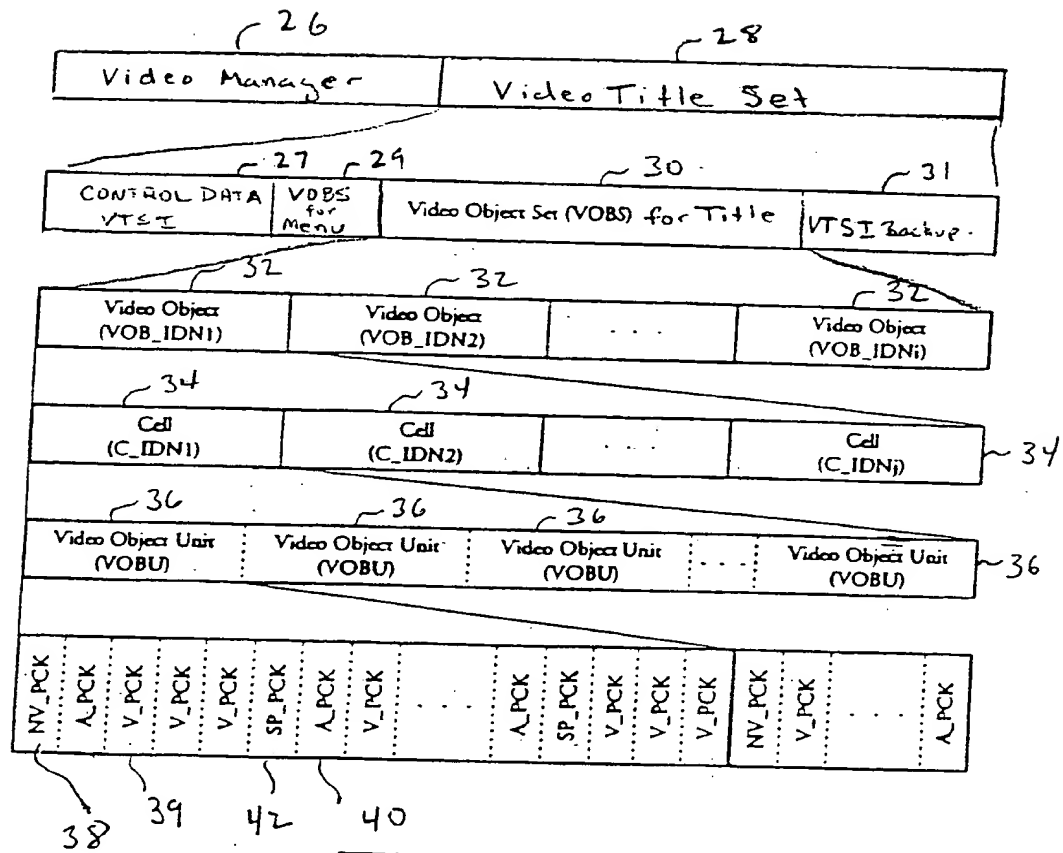 26 28
Video Manager Video Title Set
27 29 30 31
CONTROL DATA VTSI VOBS for Menu Video Object Set (VOBS) for Title VTSI Backup.
32 32 32
Video Object (VOB_IDN1) Video Object (VOB_IDN2) . . . . Video Object (VOB_IDNi)
34 34
Cell (C_IDN1) Cell (C_IDN2) . . . . Cell (C_IDNj) 34
36 36 36
Video Object Unit (VOBU) Video Object Unit (VOBU) Video Object Unit (VOBU) . . . . Video Object Unit (VOBU) 36
NV_PCK A_PCK V_PCK V_PCK V_PCK SP_PCK A_PCK V_PCK . . . . A_PCK SP_PCK V_PCK V_PCK V_PCK NV_PCK V_PCK . . . . A_PCK
38 39 42 40